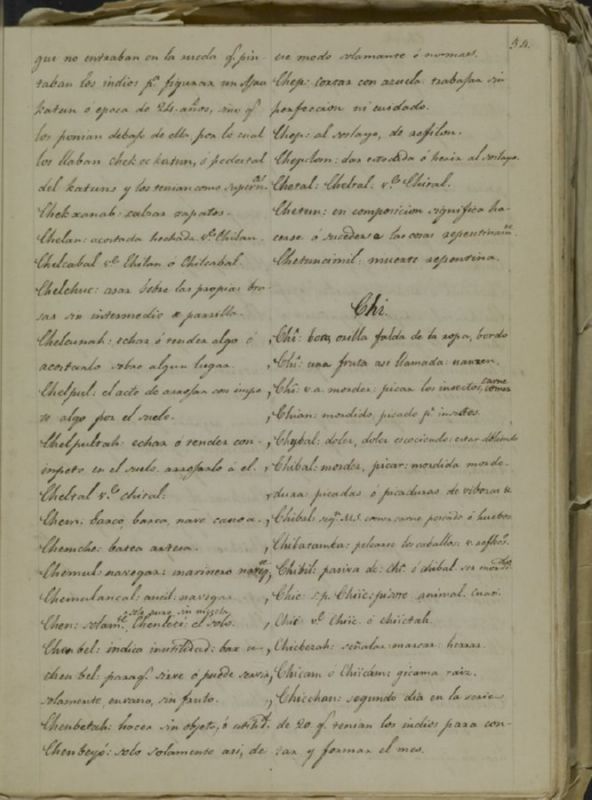 54.
que no entraban en la rueda q. pin-
taban los indios pa. figurar un ajau
katun ó epoca de 24. años, sino q.
los ponian debajo de ella, por lo cual
los llaban chek oc katun, ó pedestal
del katuns y los tenian como
Chekxanab: calzar zapatos.
Chelan: acostada hechada Vo. Chilan.
Chelcabal Vo. Chilan ó Chilcabal.
Chelchuc: asar sobre las propias bra-
sas sin intermedio de parrilla.
Chelcunah: echar ó render algo ó
acostarlo sobre algun lugar.
Chelpul: el acto de arrojar con impe-
tu algo por el suelo.
Chelpultah: echar ó render con
impetu en el suelo. arrojarlo á el.
Cheltal Vo. chital:
Chem: barco, barca, nave canoa.
Chemche: barca artesa.
Chemul navegar: marinero naveg.te
Chemulancal: aucil: navegar.
Chen: solamte. solo puro sin mezcla Chenleti: el solo.
Chenbel: indica inutilidad: bax u-
chenbel: paraq. sirve ó puede servir,
solamente, en vano, sin fruto.
Chenbetah: hacer sin objeto, ó utilid.d
Chenbeyó: solo solamente asi, de
ese modo solamante ó nomas.
Chep: cortar con azuela trabajar sin
perfeccion ni cuidado.
Chep: al soslayo, de refilon.
Chepelom: dar estocada ó herir al soslayo.
Chetal: Cheltal. Vo. Chital.
Chetun: en composicion significa ha-
cerse ó suceder las cosas repentinamte.
Chetuncimil: muerte repentina.
Chi.
, Chi: boca, orilla falda de la ropa, bordo
, Chi: una fruta asi llamada: nanzen.
, Chi: v. a. morder: picar los insectos, comer carne
, Chian: mordido, picado pr. insectos.
, Chybal: doler, doler escociendo: estar doliendo
, Chibal: morder, picar: mordida morde-
, dura: picadas ó picaduras de viboras &
, Chibal: segn. Ms. comer carne pescado ó huebos
, Chibatamba: pelearse los caballos: v. reflecso.
, Chibil: pasiva de: chi ó chibal. ser mordido.
, Chic: s. p. Chiic: pisote animal. Cuati.
, Chic Vo. Chiic. ó chiictah.
, Chicbezah: señalar marcar herrar.
, Chicam ó Chiicam: gicama raiz.
, Chicchan: segundo dia en la serie
de 20 q. tenian los indios para con-
tar y formar el mes.